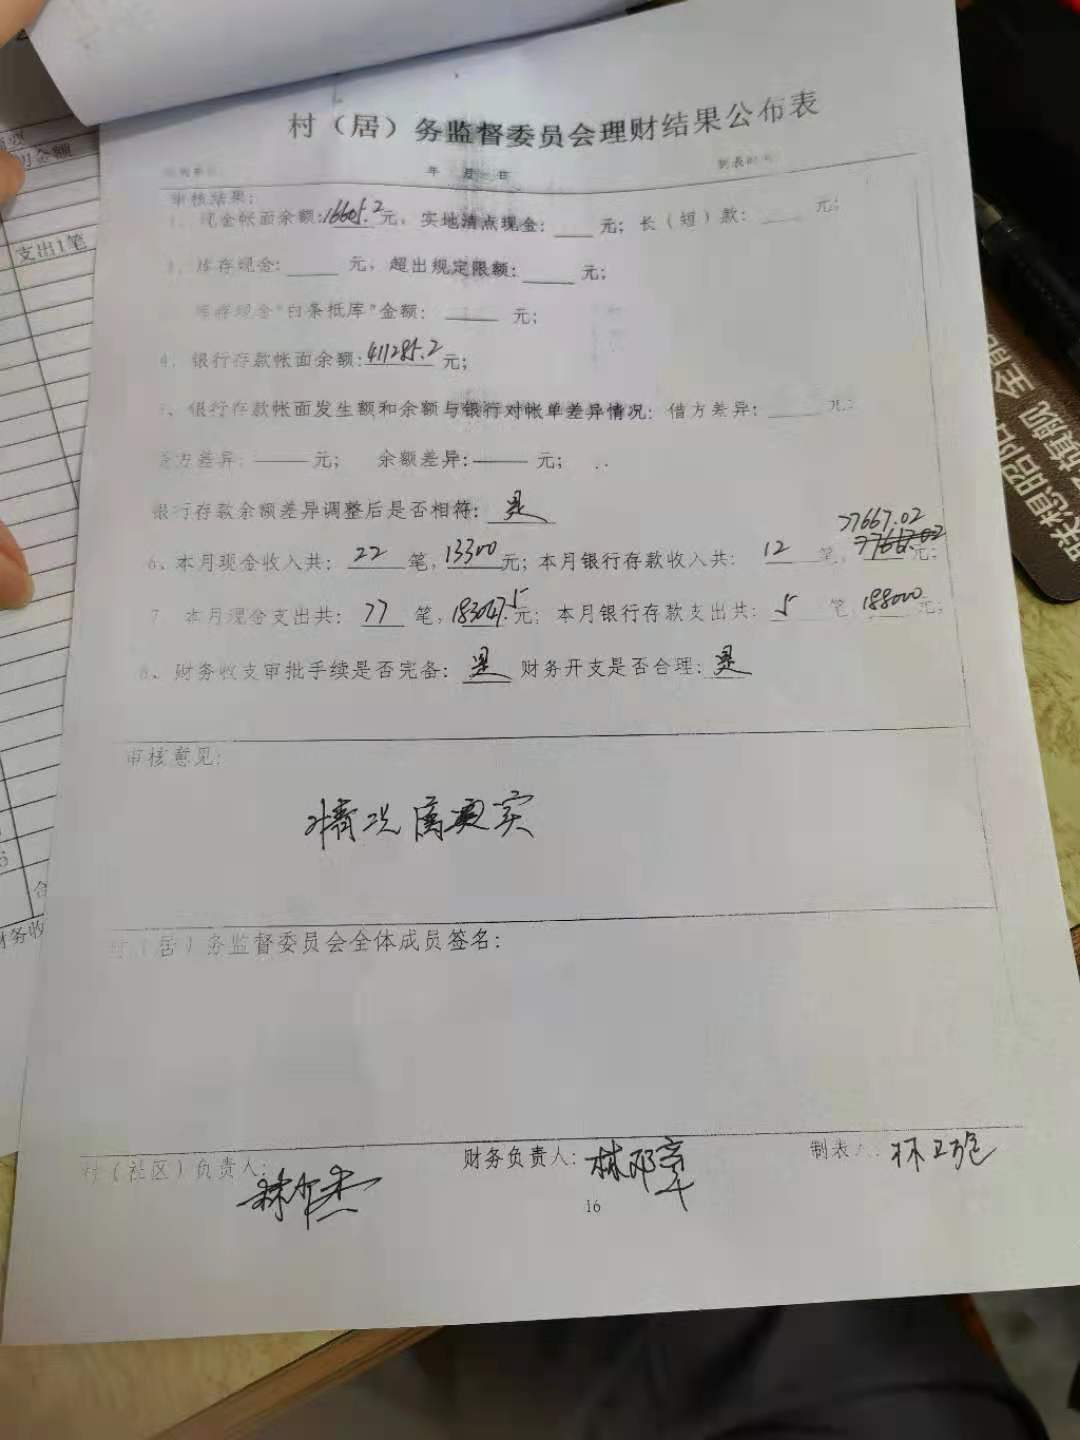 村（居）务监督委员会理财结果公布表
年 月 日 制表时间
审核结果：
1、现金帐面余额：16605.2元，实地清点现金：____元；长（短）款：____元；
2、库存现金：____元，超出规定限额：____元；
库存现金“白条抵库”金额：____元；
4、银行存款帐面余额：411285.2元；
5、银行存款帐面发生额和余额与银行对帐单差异情况：借方差异：____元；
贷方差异：——元； 余额差异：——元；
银行存款余额差异调整后是否相符：是
77667.02
6、本月现金收入共：22笔，13300元；本月银行存款收入共：12笔，元；
7 本月现金支出共：77笔，183047.5元；本月银行存款支出共：5笔，188000元；
8、财务收支审批手续是否完备：是 财务开支是否合理：是
审核意见：
情况属实
村（居）务监督委员会全体成员签名：
村（社区）负责人： 财务负责人：林邓 制表人：林卫
16
支出1笔
金额
合
财务收
联想昭阳 全能
旗舰